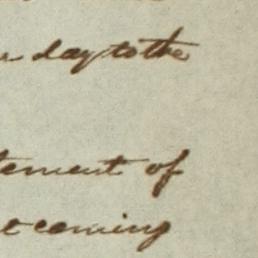 day to the
tement of
coming